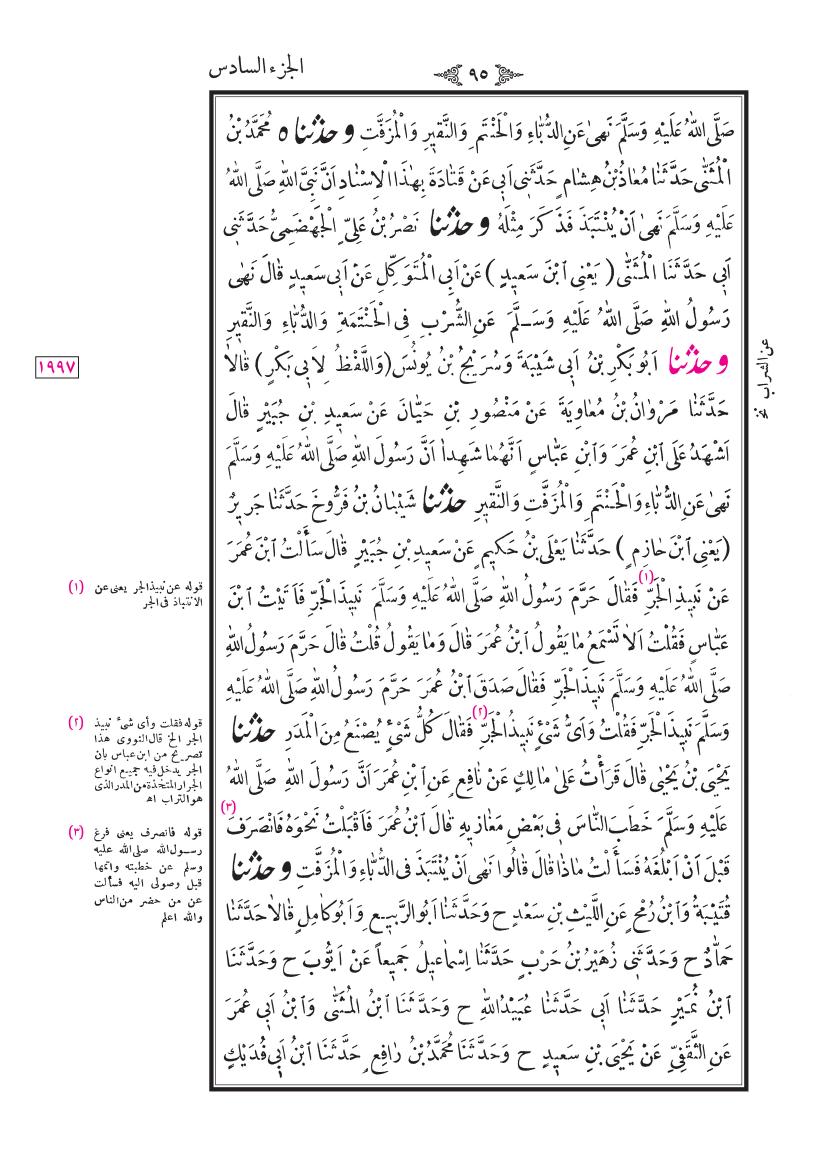 الجزء السادس
٩٥
صَلَّى اللهُ عَلَيْهِ وَسَلَّمَ نَهىٰ عَنِ الدُّبَّاءِ وَالْحَنْتَمِ وَالنَّقيرِ وَالْمُزَفَّتِ و حَدَّثَنَا ٥ مُحَمَّدُ بْنُ
الْمُثَنّٰى حَدَّثَنَا مُعَاذُ بْنُ هِشامٍ حَدَّثَنى اَبى عَنْ قَتَادَةَ بِهٰذَا الْاِسْنَادِ اَنَّ نَبِىَّ اللهِ صَلَّى اللهُ
عَلَيْهِ وَسَلَّمَ نَهىٰ اَنْ يُنْتَبَذَ فَذَكَرَ مِثْلَهُ و حَدَّثَنَا نَصْرُ بْنُ عَلِىٍّ الْجَهْضَمِىُّ حَدَّثَنى
اَبى حَدَّثَنَا الْمُثَنّٰى ( يَعْنِى ابْنَ سَعيدٍ ) عَنْ اَبِى الْمُتَوَكِّلِ عَنْ اَبى سَعيدٍ قالَ نَهىٰ
رَسُولُ اللهِ صَلَّى اللهُ عَلَيْهِ وَسَلَّمَ عَنِ الشُّرْبِ فِى الْحَنْتَمَةِ وَالدُّبَّاءِ وَالنَّقيرِ
و حَدَّثَنَا اَبُو بَكْرِ بْنُ اَبى شَيْبَةَ وَسُرَيْجُ بْنُ يُونُسَ (وَاللَّفْظُ لِاَبى بَكْرٍ) قالاَ
١٩٩٧
عن الشراب نخ
حَدَّثَنَا مَرْوانُ بْنُ مُعاوِيَةَ عَنْ مَنْصُورِ بْنِ حَيَّانَ عَنْ سَعيدِ بْنِ جُبَيْرٍ قالَ
اَشْهَدُ عَلَى ابْنِ عُمَرَ وَابْنِ عَبَّاسٍ اَنَّهُما شَهِدا اَنَّ رَسُولَ اللهِ صَلَّى اللهُ عَلَيْهِ وَسَلَّمَ
نَهىٰ عَنِ الدُّبَّاءِ وَالْحَنْتَمِ وَالْمُزَفَّتِ وَالنَّقيرِ حَدَّثَنَا شَيْبَانُ بْنُ فَرُّوخَ حَدَّثَنَا جَريرٌ
(يَعْنِى ابْنَ حازِمٍ ) حَدَّثَنَا يَعْلَى بْنُ حَكيمٍ عَنْ سَعيدِ بْنِ جُبَيْرٍ قالَ سَأَلْتُ ابْنَ عُمَرَ
عَنْ نَبيذِ الْجَرِّ (١) فَقالَ حَرَّمَ رَسُولُ اللهِ صَلَّى اللهُ عَلَيْهِ وَسَلَّمَ نَبيذَ الْجَرِّ فَاَتَيْتُ ابْنَ
عَبَّاسٍ فَقُلْتُ اَلاَ تَسْمَعُ مَا يَقُولُ ابْنُ عُمَرَ قالَ وَمَا يَقُولُ قُلْتُ قالَ حَرَّمَ رَسُولُ اللهِ
صَلَّى اللهُ عَلَيْهِ وَسَلَّمَ نَبيذَ الْجَرِّ فَقالَ صَدَقَ ابْنُ عُمَرَ حَرَّمَ رَسُولُ اللهِ صَلَّى اللهُ عَلَيْهِ
وَسَلَّمَ نَبيذَ الْجَرِّ فَقُلْتُ وَاَىُّ شَىْءٍ نَبيذُ الْجَرِّ (٢) فَقالَ كُلُّ شَىْءٍ يُصْنَعُ مِنَ الْمَدَرِ حَدَّثَنَا
يَحْيَى بْنُ يَحْيٰى قالَ قَرَأْتُ عَلىٰ مالِكٍ عَنْ نافِعٍ عَنِ ابْنِ عُمَرَ اَنَّ رَسُولَ اللهِ صَلَّى اللهُ
عَلَيْهِ وَسَلَّمَ خَطَبَ النَّاسَ فى بَعْضِ مَغازيهِ قالَ ابْنُ عُمَرَ فَاَقْبَلْتُ نَحْوَهُ فَانْصَرَفَ (٣)
قَبْلَ اَنْ اَبْلُغَهُ فَسَأَلْتُ مَاذَا قالَ قالُوا نَهىٰ اَنْ يُنْتَبَذَ فِى الدُّبَّاءِ وَالْمُزَفَّتِ و حَدَّثَنَا
قُتَيْبَةُ وَابْنُ رُمْحٍ عَنِ اللَّيْثِ بْنِ سَعْدٍ ح وَحَدَّثَنَا اَبُو الرَّبيعِ وَاَبُو كامِلٍ قالاَ حَدَّثَنَا
حَمَّادٌ ح وَحَدَّثَنى زُهَيْرُ بْنُ حَرْبٍ حَدَّثَنَا اِسْماعيلُ جَميعاً عَنْ اَيُّوبَ ح وَحَدَّثَنَا
ابْنُ نُمَيْرٍ حَدَّثَنَا اَبى حَدَّثَنَا عُبَيْدُ اللهِ ح وَحَدَّثَنَا ابْنُ الْمُثَنّٰى وَابْنُ اَبى عُمَرَ
عَنِ الثَّقَفِىِّ عَنْ يَحْيَى بْنِ سَعيدٍ ح وَحَدَّثَنَا مُحَمَّدُ بْنُ رافِعٍ حَدَّثَنَا ابْنُ اَبى فُدَيْكٍ
(١) قوله عن نبيذ الجر يعنى عن
الانتباذ فى الجر
(٢) قوله فقلت وأى شئ نبيذ
الجر الخ قال النووى هذا
تصريح من ابن عباس بان
الجر يدخل فيه جميع انواع
الجرار المتخذة من المدر الذى
هو التراب اه
(٣) قوله فانصرف يعنى فرغ
رسول الله صلى الله عليه
وسلم عن خطبته واتمها
قبل وصولى اليه فسألت
عن من حضر من الناس
والله اعلم